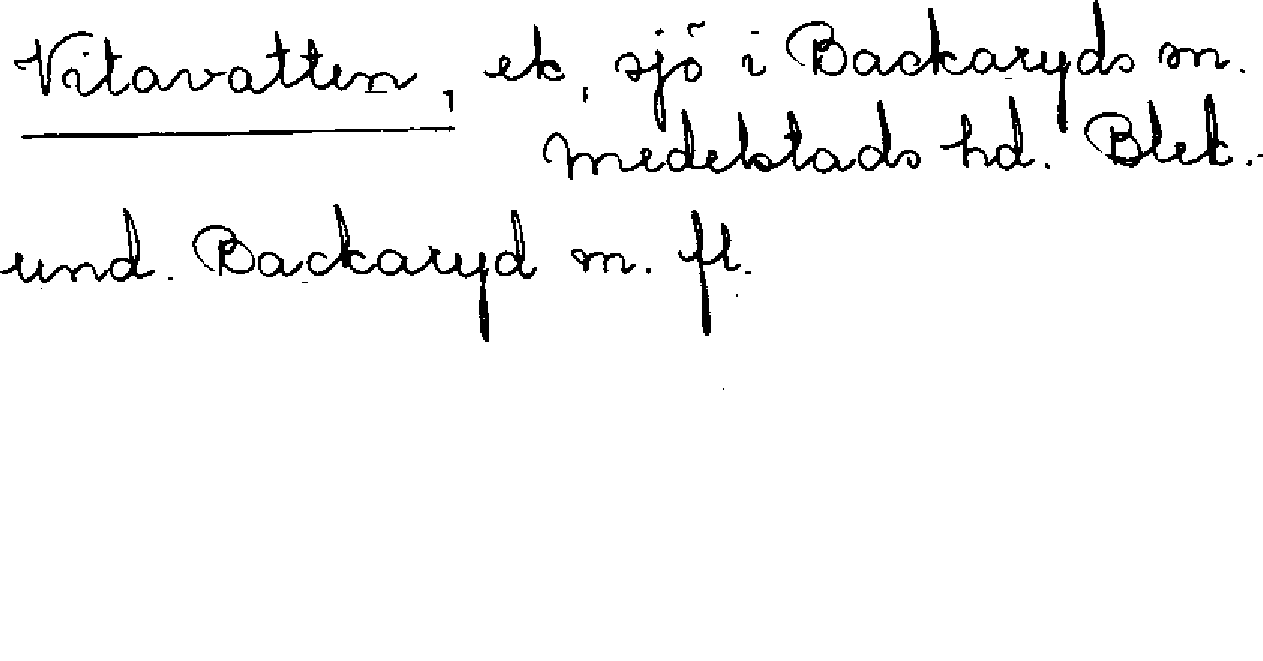 Vitavatten, ek, sjö i Backaryds sn.
Medelstads hd. Blek.
und. Backaryd m. fl.